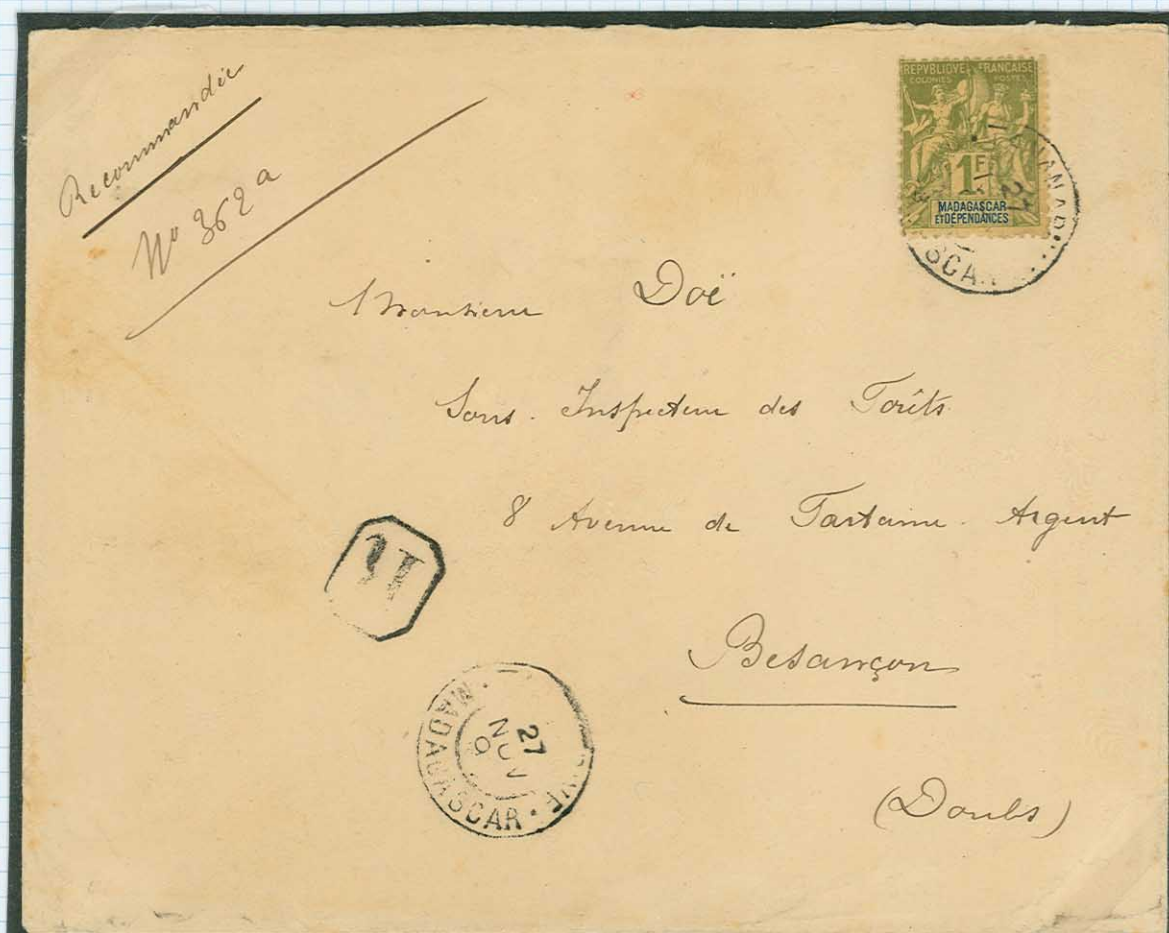 Recommandée
No 362 a
REPVBLIQVE FRANCAISE
COLONIES POSTES
1F
MADAGASCAR
ET DÉPENDANCES
27
Monsieur Doë
Sous-Inspecteur des Forêts
8 Avenue de Fontaine-Argent
Besançon
(Doubs)
27
MADAGASCAR